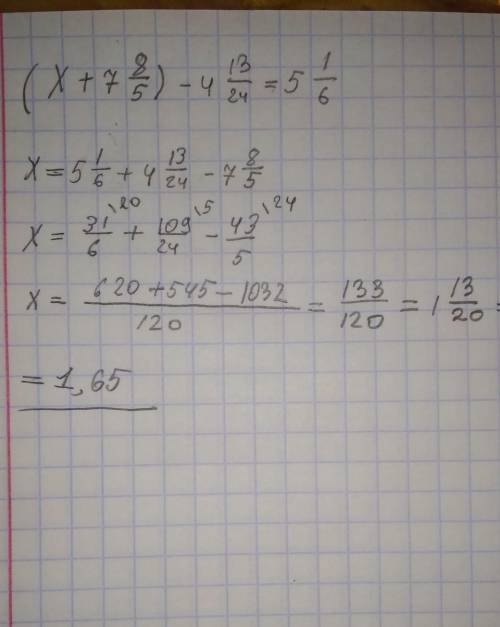 (X + 7 8/5) - 4 13/24 = 5 1/6
X = 5 1/6 + 4 13/24 - 7 8/5
X = 31/6 \20 + 109/24 \5 - 43/5 \24
X = 620 + 545 - 1032/120 = 133/120 = 1 13/20 =
= 1,65